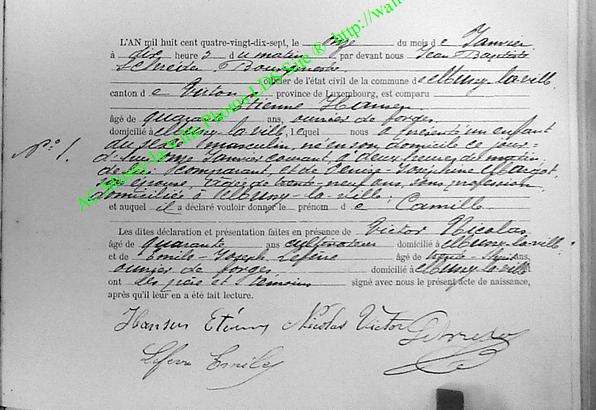 L'AN mil huit cent quatre-vingt-dix-sept, le onze du mois de Janvier
à dix heures du matin par devant nous Jean Baptiste
Bourgmestre
officier de l'état civil de la commune de Mussy-la-ville
canton de Virton province de Luxembourg, est comparu
Etienne Hansen
âgé de quarante ans, ouvrier de forges
domicilié à Mussy-la-ville, lequel nous a présenté un enfant
N°: 1.
du sexe masculin, né en son domicile ce jour-
d'hui onze Janvier courant, à deux heures du matin,
de lui comparant, et de Josephine
son épouse, âgée de trente-neuf ans, sans profession
domiciliée à Mussy-la-ville
et auquel il a déclaré vouloir donner le prénom de Camille
Les dites déclaration et présentation faites en présence de Victor Nicolas
âgé de quarante ans cultivateur domicilié à Mussy-la-ville
et de Emile-Joseph Lefèvre âgé de ans,
ouvrier de forges domicilié à Mussy-la-ville
ont les père et témoins signé avec nous le présent acte de naissance,
après qu'il leur en a été fait lecture.
Hansen Etienne Nicolas Victor
Lefevre Emile
AC Mussy-la-Ville Photos LDS Gite ® http://wal